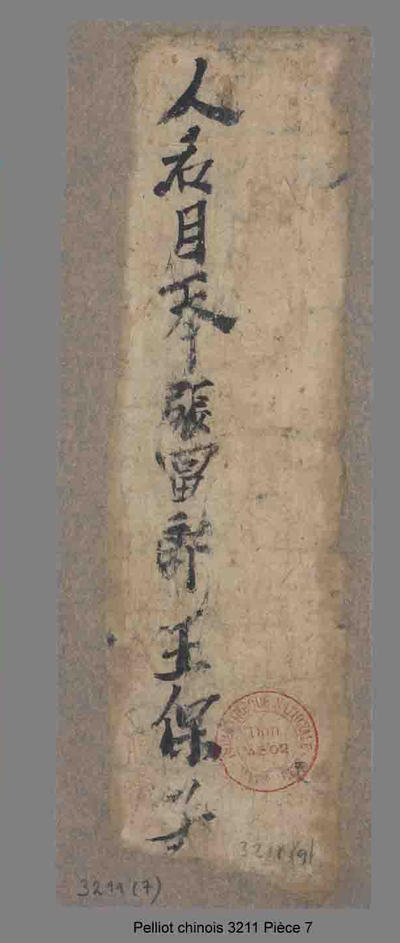 人名目夲張富郍王保子
BIBLIOTHEQUE NATIONALE
Don
3211(9)
3211(7)
Pelliot chinois 3211 Pièce 7